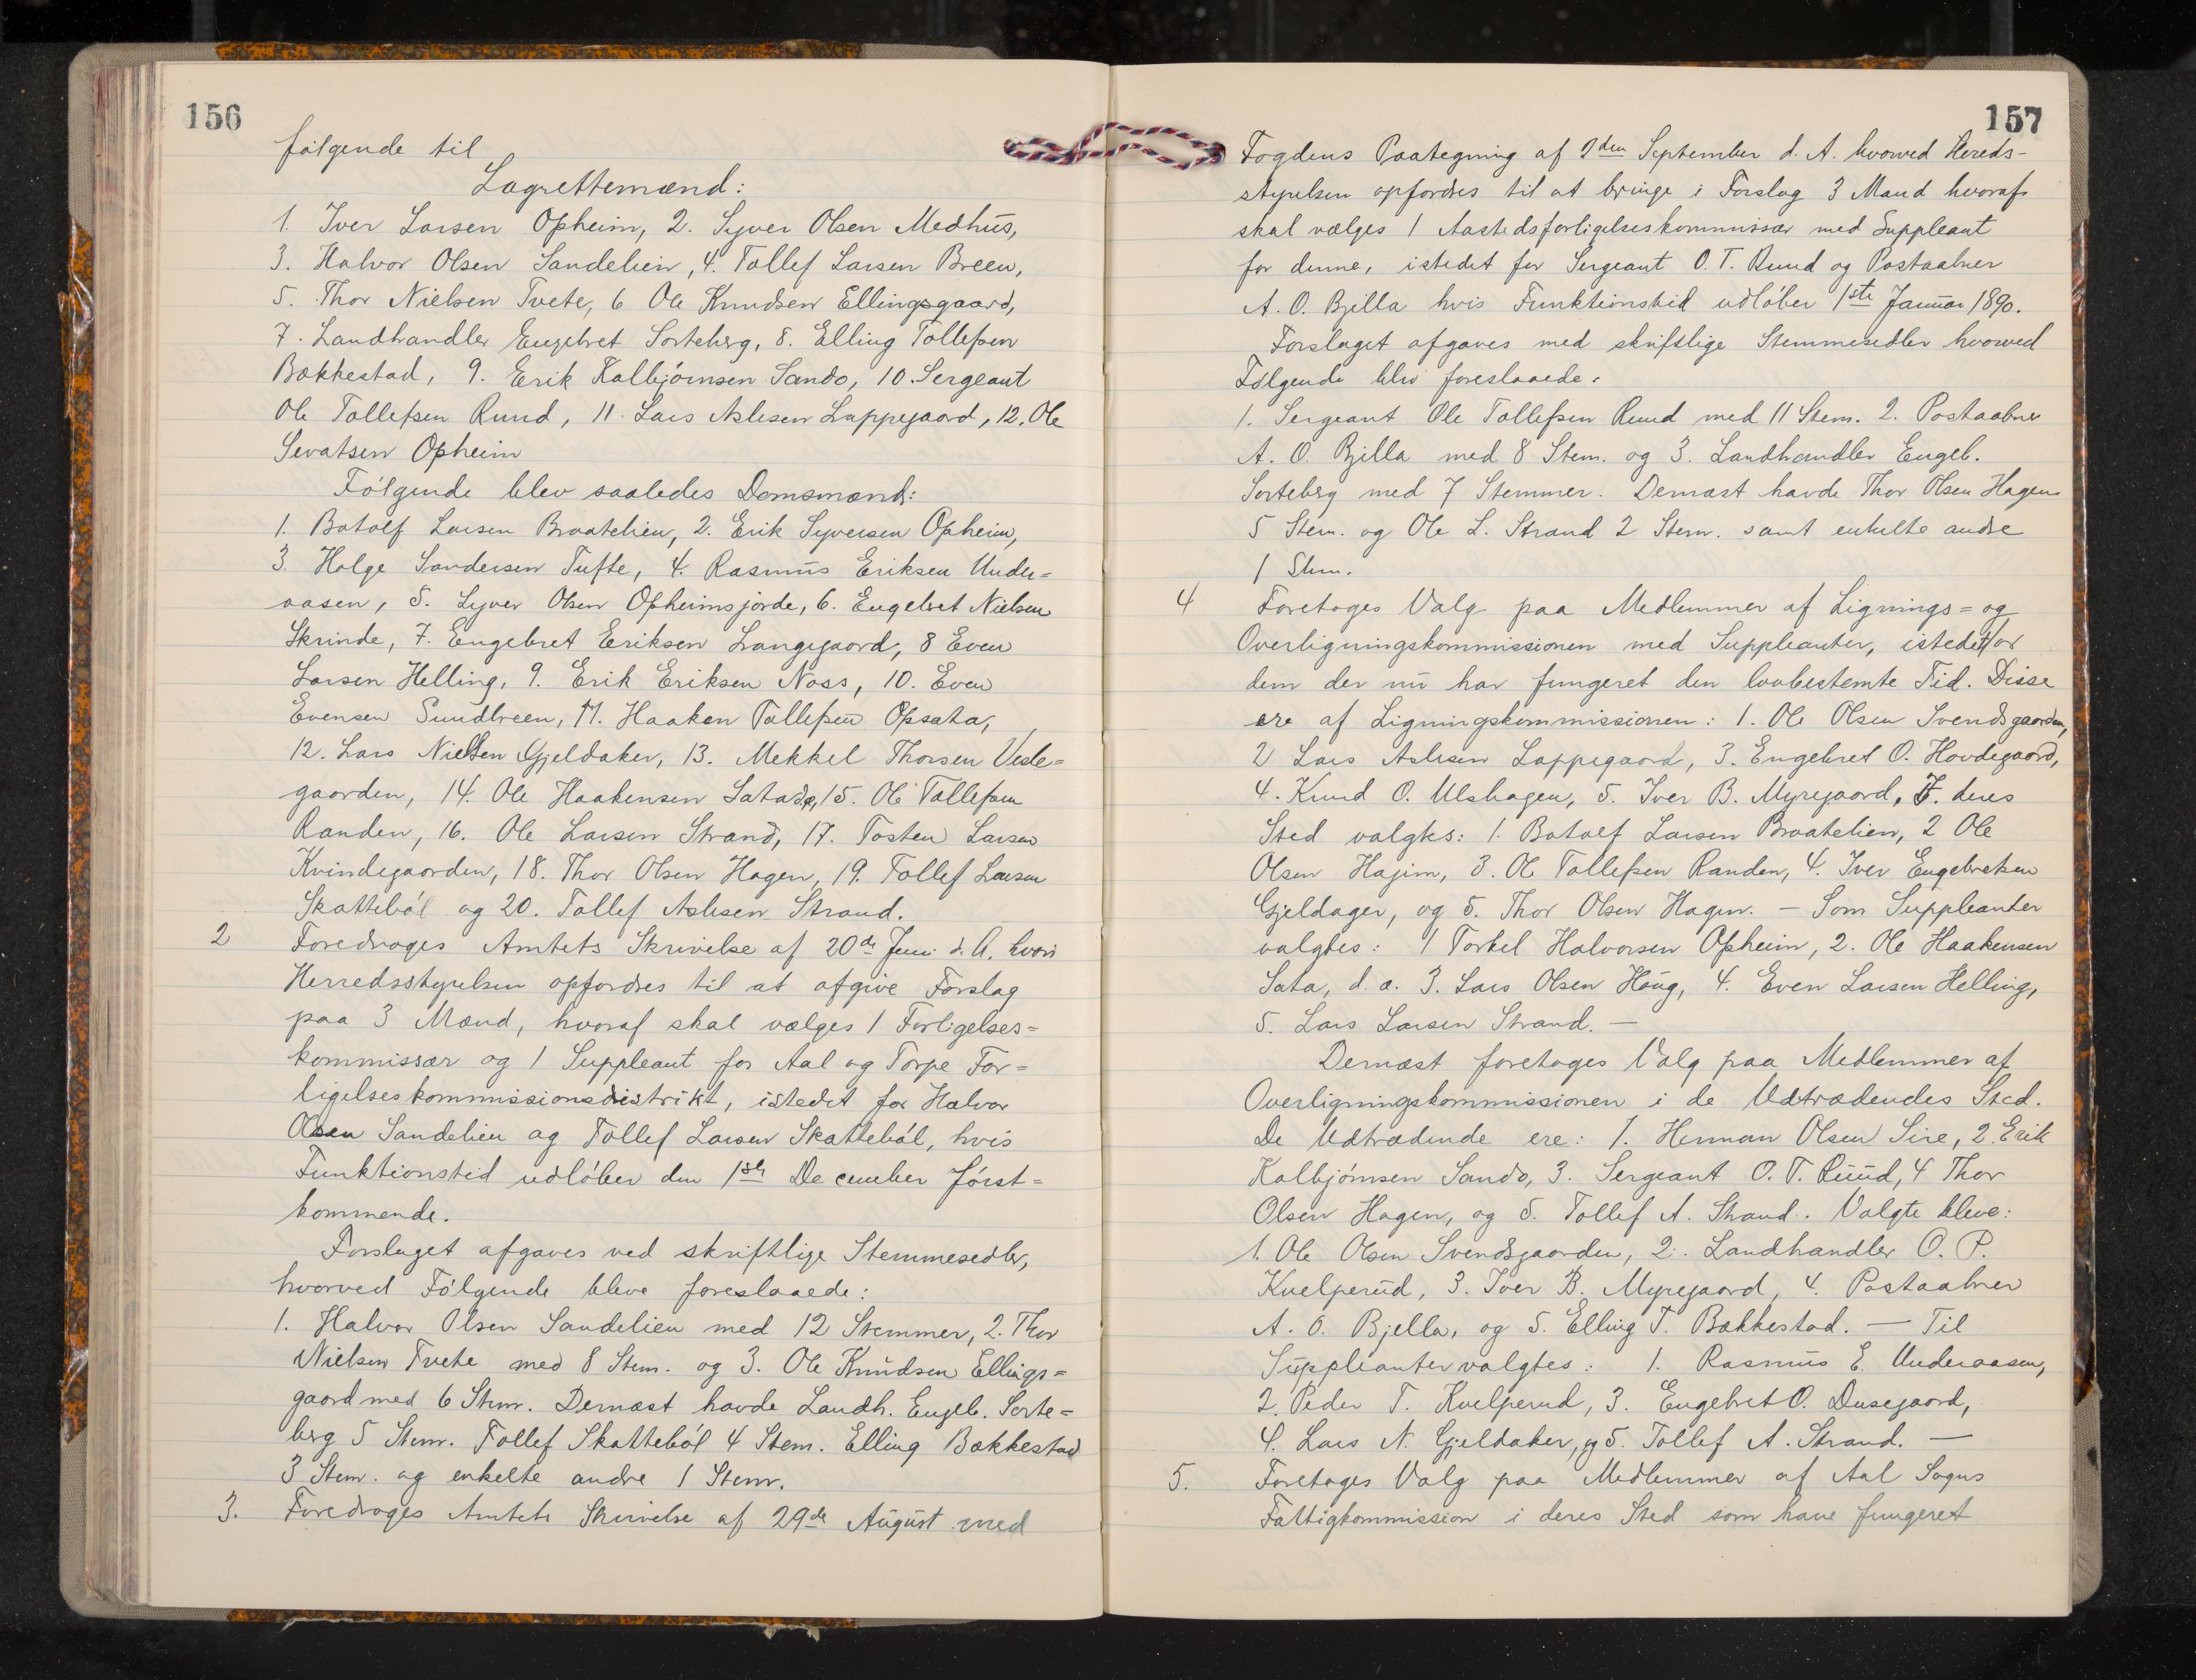 156
følgende til
Lagrettemænd:
1. Iver Larsen Opheim, 2. Syver Olsen Medhus,
3. Halvor Olsen Sandelien, 4. Tollef Larsen Breen,
5. Thor Nielsen Tvete, 6 Ole Knudsen Ellingsgaard,
7. Landhandler Engebret Sorteberg, 8. Elling Tollefsen
Bækkestad, 9. Erik Kolbjørnsen Sando, 10. Sergeant
Ole Tollefsen Ruud, 11. Lars Aslesen Lappegaard, 12. Ole
Sevatsen Opheim
Følgende blev saaledes Domsmænd:
1. Botolf Larsen Braatelien, 2. Erik Syversen Opheim,
3. Holge Sandersen Tufte, 4. Rasmus Eriksen Under=
aasen, 5. Syver Olsen Opheimsjorde, 6. Engebret Nielsen
Skrinde, 7. Engebret Eriksen Langegaard, 8 Even
Larsen Helling, 9. Erik Eriksen Noss, 10. Even
Evensen Sundbreen, 11. Haaken Tollefsen Opsata,
12. Lars Nielsen Gjeldaker, 13. Mekkel Thorsen Vesle=
gaarden, 14. Ole Haakensen Sata d.æ, 15. Ole Tollefsen
Randen, 16. Ole Larsen Strand, 17. Tosten Larsen
Kvindegaarden, 18. Thor Olsen Hagen, 19. Tollef Larsen
Skattebøl og 20. Tollef Aslesen Strand.
2 Foredroges Amtets Skrivelse af 20de Juni d. A. hvori
Herredsstyrelsen opfordres til at afgive Forslag
paa 3 Mænd, hvoraf skal vælges 1 Forligelses=
kommissær og 1 Suppleant for Aal og Torpe For=
ligelseskommissionsdistrikt, istedet for Halvor
Olsen Sandelien og Tollef Larsen Skattebøl, hvis
Funktionstid udløber den 1ste December først=
kommende.
Forslaget afgaves ved skriftlige Stemmesedler,
hvorved Følgende bleve foreslaaede:
1. Halvor Olsen Sandelien med 12 Stemmer, 2. Thor
Nielsen Tvete med 8 Stem. og 3. Ole Knudsen Ellings=
gaard med 6 Stem. Dernæst havde Landh. Engeb. Sorte=
berg 5 Stem. Tollef Skattebøl 4 Stem. Elling Bækkestad
3 Stem. og enkelte andre 1 Stem.
3. Foredroges Amtets Skrivelse af 29de August med
157
Fogdens Paategning af 2den September d. A. hvorved Hereds-
styrelsen opfordres til at bringe i Forslag 3 Mand hvoraf
skal vælges 1 Aastedsforligelseskommissær med Suppleant
for denne, istedet for Sergeant O. T. Ruud og Postaabner
A. O. Bjella hvis Funktionstid udløber 1ste Januar 1890.
Forslaget afgaves med skriftlige Stemmesedler hvorved
Følgende blev foreslaaede:
1. Sergeant Ole Tollefsen Ruud med 11 Stem. 2. Postaabner
A. O. Bjella med 8 Stem. og 3. Landhandler Engeb.
Sorteberg med 7 Stemmer. Dernæst havde Thor Olsen Hagen
5 Stem. og Ole L. Strand 2 Stem. samt enkelte andre
1 Stem.
4 Foretoges Valg paa Medlemmer af Lignings= og
Overligningskommissionen med Suppleanter, istedetfor
dem der nu har fungeret den lovbestemte Tid. Disse
ere af Ligningskommissionen: 1. Ole Olsen Svendsgaarden,
2 Lars Aslesen Lappegaard, 3. Engebret O. Hovdegaard,
4. Knud O. Ulshagen, 5. Iver B. Myregaard, I deres
Sted valgtes: 1. Botolf Larsen Braatelien, 2 Ole
Olsen Hajim, 3. Ole Tollefsen Randen, 4. Iver Engebretsen
Gjeldager, og 5. Thor Olsen Hagen. — Som Suppleanter
valgtes: 1 Torkel Halvorsen Opheim, 2. Ole Haakensen
Sata, d. æ. 3. Lars Olsen Haug, 4. Even Larsen Helling,
5. Lars Larsen Strand. —
Dernæst foretoges Valg paa Medlemmer af
Overligningskommissionen i de Udtrædendes Sted.
De Udtrædende ere: 1. Herman Olsen Sire, 2. Erik
Kolbjørnsen Sando, 3. Sergeant O. T. Ruud, 4 Thor
Olsen Hagen, og 5. Tollef A. Strand. Valgte bleve:
1. Ole Olsen Svendsgaarden, 2. Landhandler O. P.
Kvelperud, 3. Iver B. Myregaard, 4. Postaabner
A. O. Bjella, og 5. Elling T. Bækkestad. — Til
Suppleanter valgtes: 1. Rasmus E. Underaasen,
2. Peder T. Kvelperud, 3. Engebret O. Dusegaard,
4. Lars N. Gjeldaker, og 5. Tollef A. Strand. —
5. Foretoges Valg paa Medlemmer af Aal Sogns
Fattigkommission i deres Sted som have fungeret